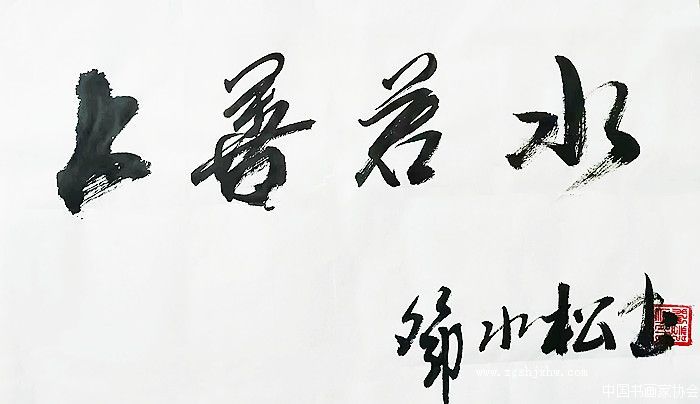 上善若水
邹水松书
www.zgshjxhw.com
中国书画家协会